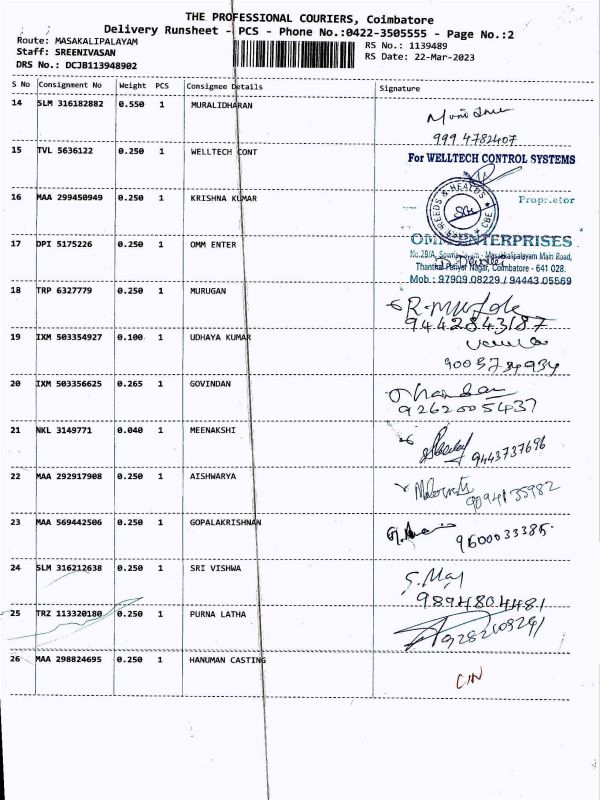 THE PROFESSIONAL COURIERS, Coimbatore
Delivery Runsheet - PCS - Phone No.:0422-3505555 - Page No.:2
Route: MASAKALIPALAYAM
Staff: SREENIVASAN
DRS No.: DCJB113948902
RS No.: 1139489
RS Date: 22-Mar-2023
S No Consignment No Weight PCS Consignee Details Signature
14 SLM 316182882 0.550 1 MURALIDHARAN
999 4782407
15 TVL 5636122 0.250 1 WELLTECH CONT
For WELLTECH CONTROL SYSTEMS
Proprietor
16 MAA 299450949 0.250 1 KRISHNA KUMAR
17 DPI 5175226 0.250 1 OMM ENTER
OMM ENTERPRISES
No.29/A, Sowripalayam - Masakalipalayam Main Road,
Thanthai Periyar Nagar, Coimbatore - 641 028.
Mob.: 97909 08229 / 94443 05569
18 TRP 6327779 0.250 1 MURUGAN
9442843187
19 IXM 503354927 0.100 1 UDHAYA KUMAR
9003734934
20 IXM 503356625 0.265 1 GOVINDAN
9262005437
21 NKL 3149771 0.040 1 MEENAKSHI
9443737696
22 MAA 292917908 0.250 1 AISHWARYA
9094135982
23 MAA 569442506 0.250 1 GOPALAKRISHNAN
9600033385
24 SLM 316212638 0.250 1 SRI VISHWA
9894804481
25 TRZ 113320180 0.250 1 PURNA LATHA
26 MAA 298824695 0.250 1 HANUMAN CASTING